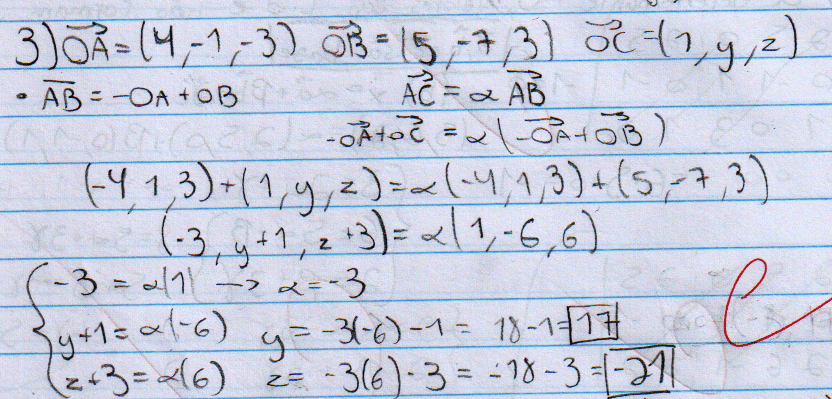 3) OA = (4, -1, -3) OB = (5, -7, 3) OC = (1, y, z)
• AB = -OA + OB AC = α AB
-OA + OC = α (-OA + OB)
(-4, 1, 3) + (1, y, z) = α(-4, 1, 3) + (5, -7, 3)
(-3, y+1, z+3) = α(1, -6, 6)
-3 = α(1) -> α = -3
y+1 = α(-6) y = -3(-6) - 1 = 18 - 1 = 17
z+3 = α(6) z = -3(6) - 3 = -18 - 3 = -21